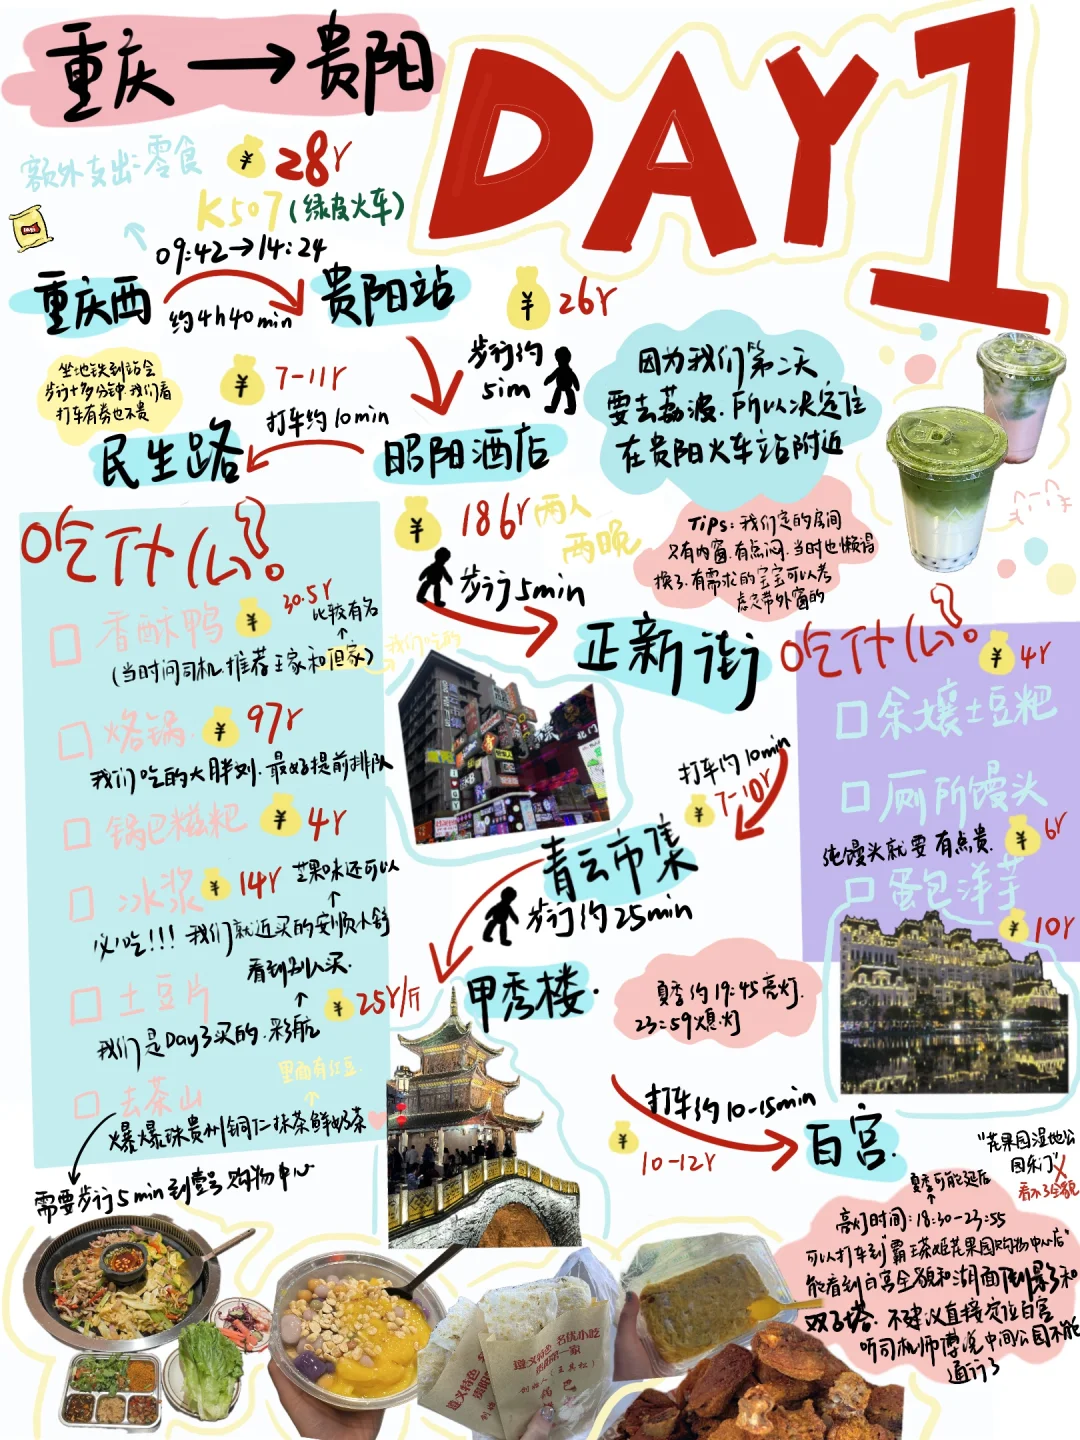 重庆→贵阳
DAY1
额外支出:零食
28r
K507(绿皮火车)
09:42→14:24
重庆西
约4h40min
贵阳站
26r
坐地铁到站会
步行十多分钟.我们看
打车有券也不贵
7-11r
打车约10min
步行约
5im
民生路
昭阳酒店
因为我们第二天
要去荔波.所以决定住
在贵阳火车站附近
186r两人
两晚
步行5min
Tips:我们定的房间
只有内窗.有点闷.当时也懒得
换了.有需求的宝宝可以考
虑定带外窗的
正新街
吃什么?
香酥鸭
30.5r
比较有名
(当时问司机.推荐王家和但家)
我们吃的
烙锅.
97r
我们吃的大胖刘.最好提前排队
锅巴糍粑
4r
冰浆
14r
芒果味还可以
必吃!!!我们就近买的安顺小舒
看到别人买.
土豆片
25r/斤
我们是Day3买的.彩航
里面有红豆.
去茶山
爆爆珠贵州铜仁抹茶鲜奶茶
需要步行5min到壹号购物中心
吃什么?
4r
余孃土豆粑
厕所馒头
纯馒头就要 有点贵.
6r
蛋包洋芋
10r
打车约10min
7-10r
青云市集
步行约25min
甲秀楼.
夏季约19:45亮灯.
23:59熄灯
打车约10-15min
10-12r
白宫.
"花果园湿地公
园东门"
看不了全貌
夏季可能延后
亮灯时间:18:30-23:55
可以打车到"霸王茶姬花果园购物中心店"
能看到白宫全貌和湖面倒影和
双子塔.不建议直接定位白宫
听司机师傅说中间公园不能
通行了
名优小吃
遵义特色